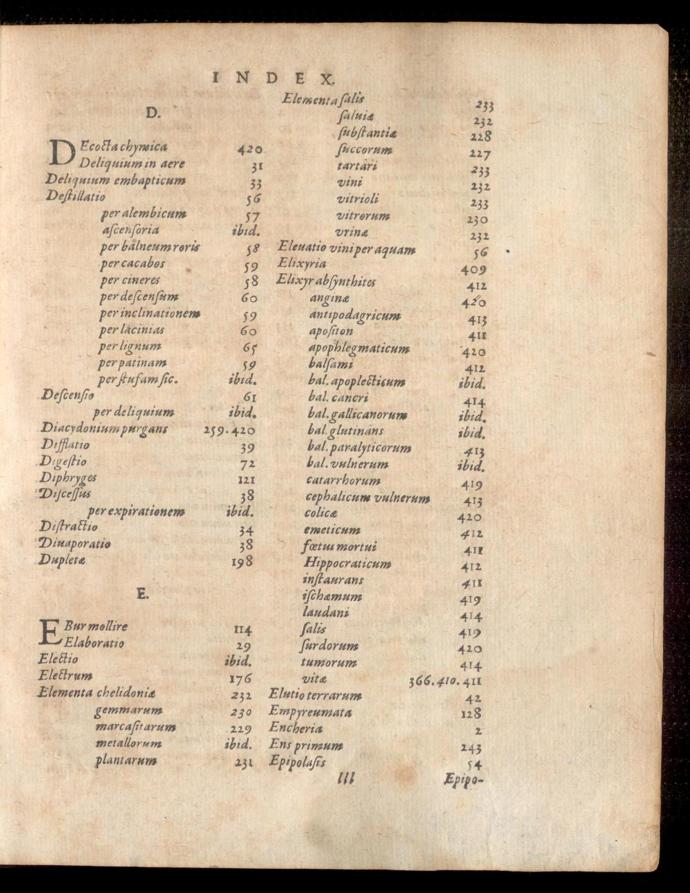 INDEX.
D.
DEcocta chymica 420
Deliquium in aere 31
Deliquium embapticum 33
Destillatio 56
per alembicum 57
ascensoria ibid.
per balneum roris 58
per cacabos 59
per cineres 58
per descensum 60
per inclinationem 59
per lacinias 60
per lignum 65
per patinam 59
per stufam sic. ibid.
Descensio 61
per deliquium ibid.
Diacydonium purgans 259.420
Difflatio 39
Digestio 72
Diphryges 121
Discessus 38
per expirationem ibid.
Distractio 34
Diuaporatio 38
Dupletæ 198
E.
EBur mollire 114
Elaboratio 29
Electio ibid.
Electrum 176
Elementa chelidoniæ 232
gemmarum 230
marcasitarum 229
metallorum ibid.
plantarum 231
Elementa salis 233
saluiæ 232
substantiæ 228
succorum 227
tartari 233
vini 232
vitrioli 233
vitrorum 230
vrinæ 232
Eleuatio vini per aquam 56
Elixyria 409
Elixyr absynthites 412
anginæ 420
antipodagricum 413
apositon 411
apophlegmaticum 420
balsami 412
bal. apoplecticum ibid.
bal. cancri 414
bal. gallicanorum ibid.
bal. glutinans ibid.
bal. paralyticorum 413
bal. vulnerum ibid.
catarrhorum 419
cephalicum vulnerum 413
colicæ 420
emeticum 412
fœtus mortui 411
Hippocraticum 412
instaurans 411
ischæmum 419
laudani 414
salis 419
surdorum 420
tumorum 414
vitæ 366.410.411
Elutio terrarum 42
Empyreumata 128
Encheria 2
Ens primum 243
Epipolasis 54
lll Epipo-